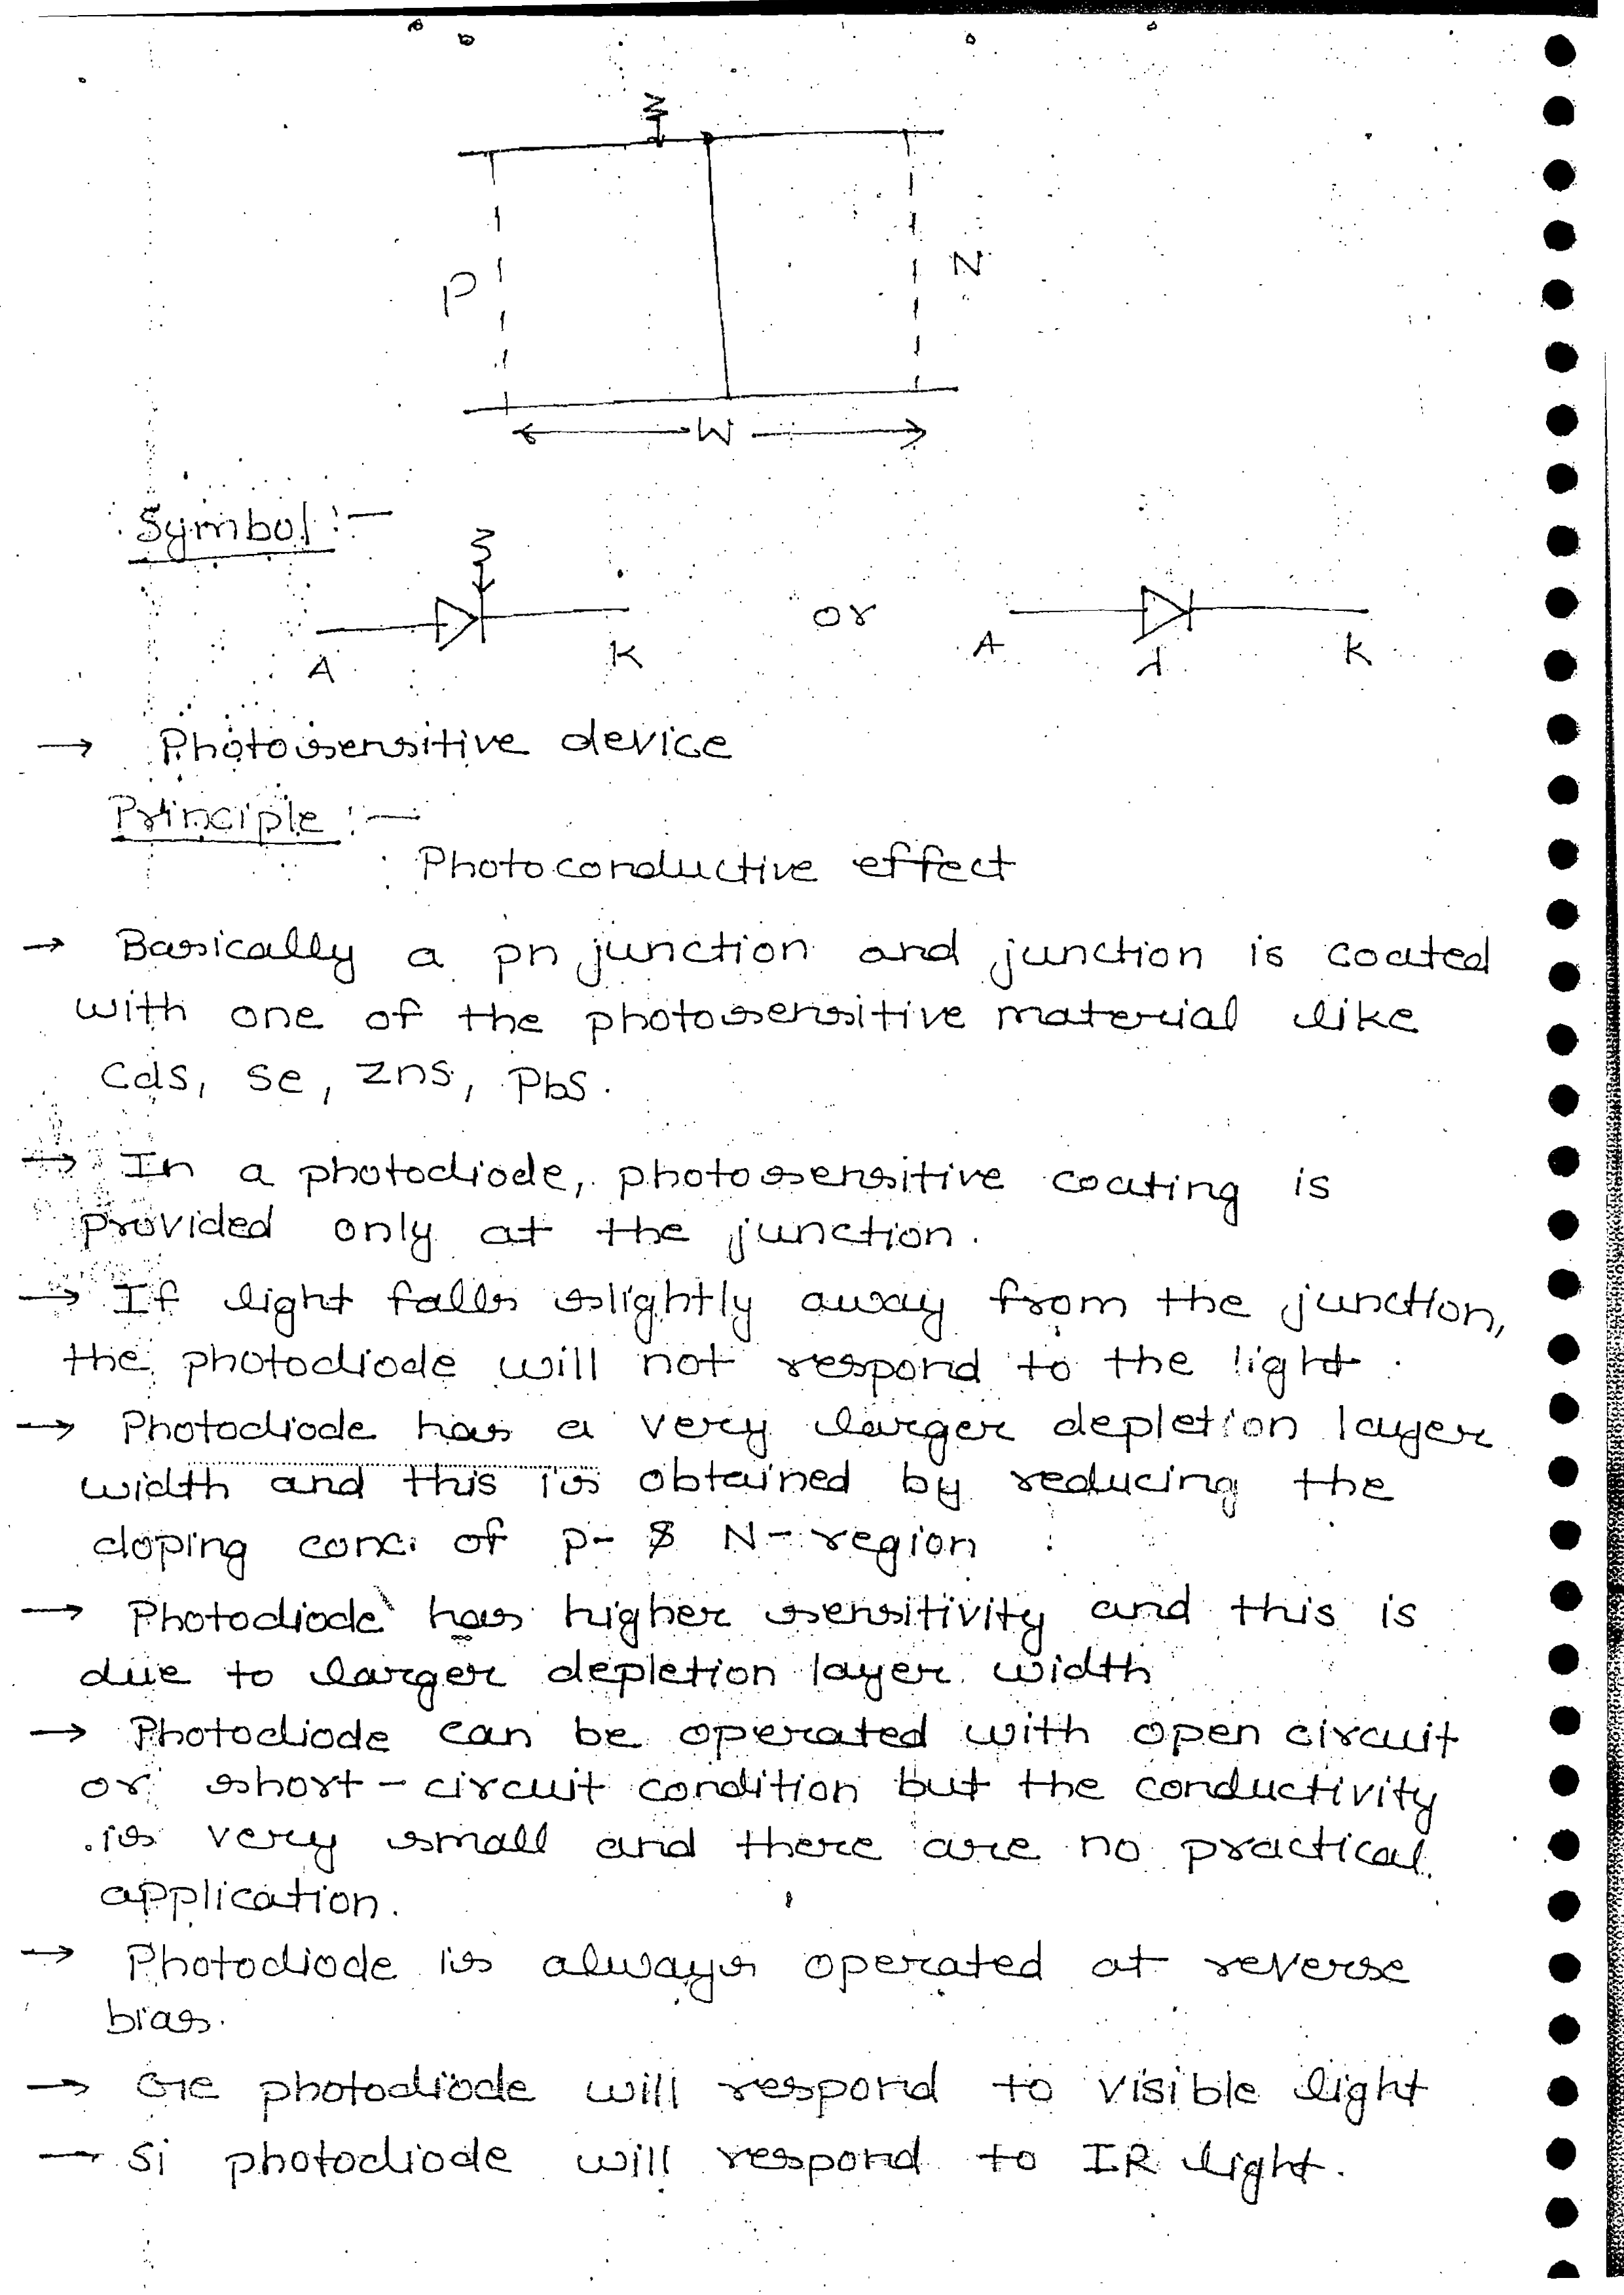 P
N
W
Symbol :-
A K or A λ K
→ Photosensitive device
Principle :-
Photoconductive effect
→ Basically a pn junction and junction is coated
with one of the photosensitive material like
Cds, Se, Zns, Pbs.
→ In a photodiode, photosensitive coating is
provided only at the junction.
→ If light falls slightly away from the junction,
the photodiode will not respond to the light.
→ Photodiode has a very larger depletion layer
width and this is obtained by reducing the
doping conc. of p- & N-region
→ Photodiode has higher sensitivity and this is
due to larger depletion layer width
→ Photodiode can be operated with open circuit
or short-circuit condition but the conductivity
is very small and there are no practical
application.
→ Photodiode is always operated at reverse
bias.
→ Ge photodiode will respond to visible light
→ Si photodiode will respond to IR light.